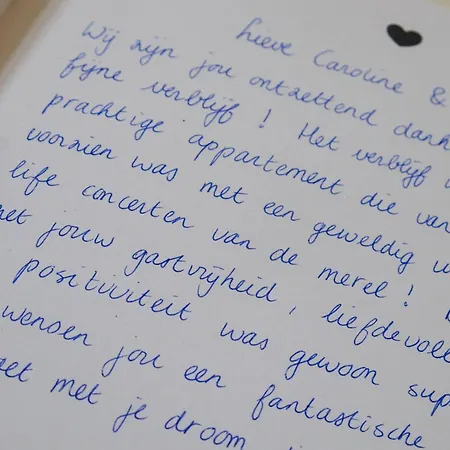 Lieve Caroline &
Wij zijn jou ontzettend dank
fijne verblijf! Het verblijf
prachtige appartement die van
voorzien was met een geweldig
life concerten van de merel!
met jouw gastvrijheid, liefdevoll
positiviteit was gewoon sup
wensen jou een fantastische
met je droom